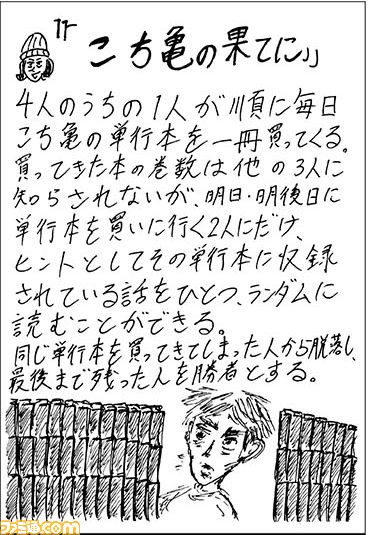 『こち亀の果てに』
4人のうちの1人が順に毎日
こち亀の単行本を一冊買ってくる。
買ってきた本の巻数は他の3人に
知らされないが、明日・明後日に
単行本を買いに行く2人にだけ、
ヒントとしてその単行本に収録
されている話をひとつ、ランダムに
読むことができる。
同じ単行本を買ってきてしまった人から脱落し、
最後まで残った人を勝者とする。
ファミ通.com